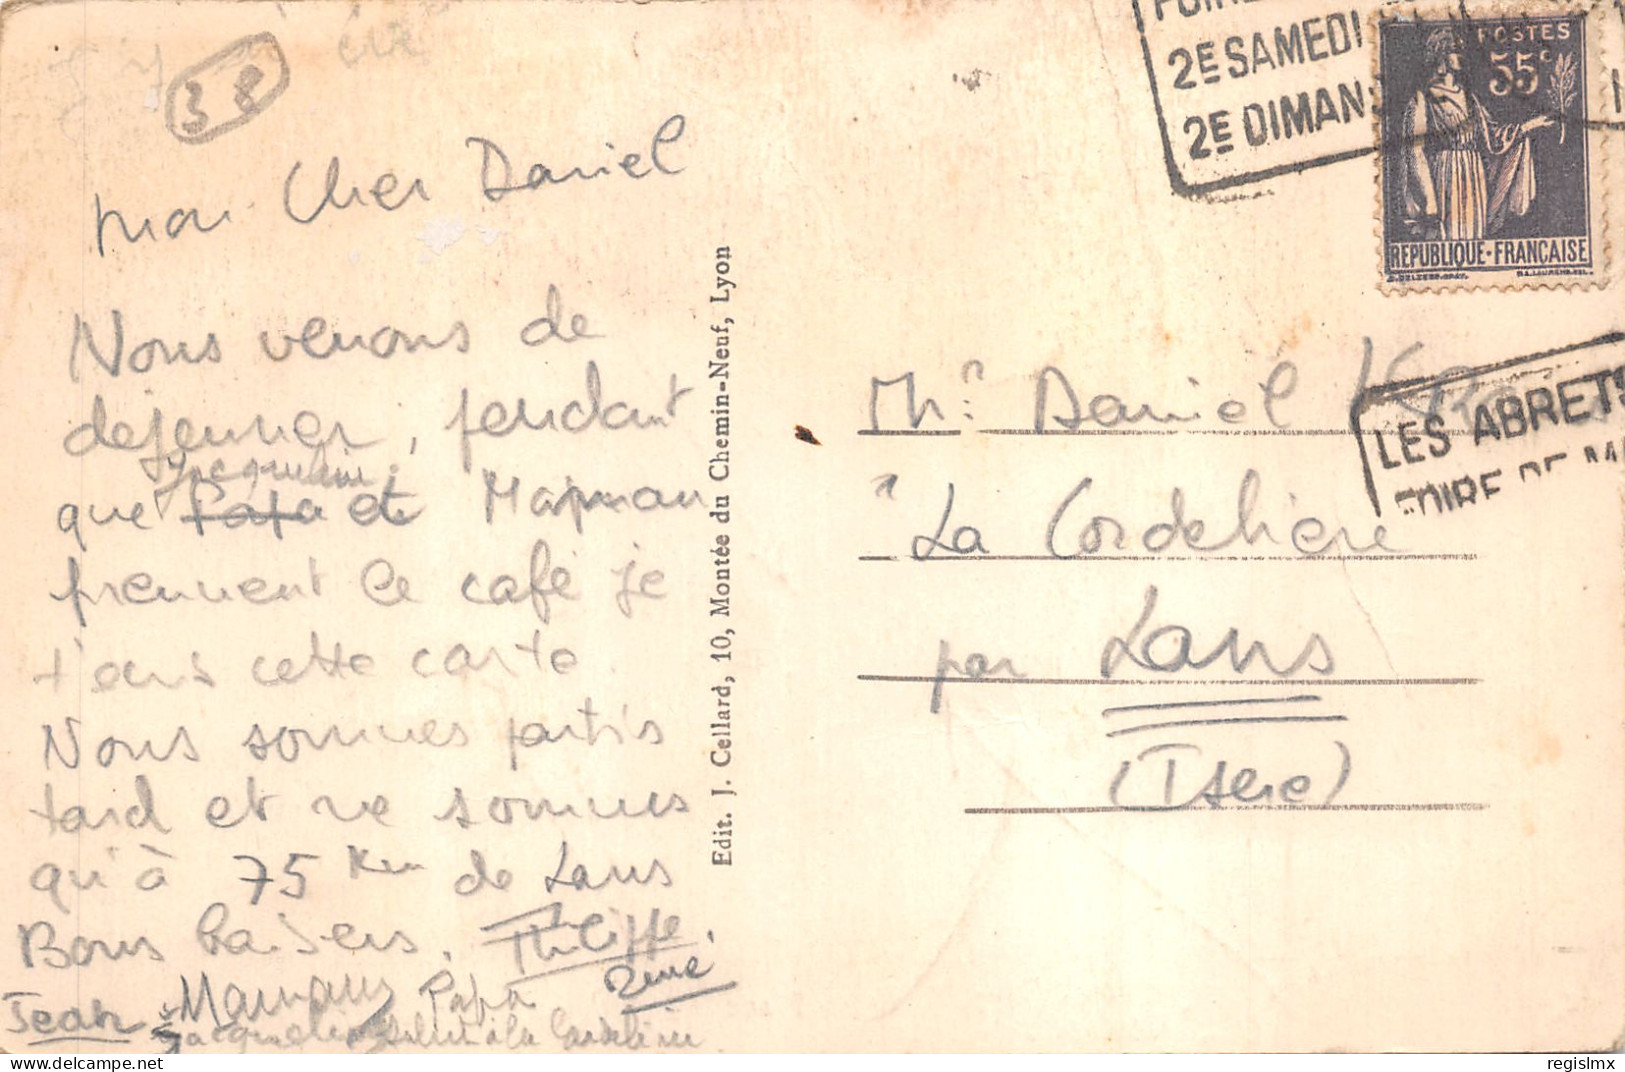 38
Mon Cher Daniel
Nous venons de
dejeuner, pendant
Jacqueline
que Papa et Maman
prennent le café je
t'ecris cette carte.
Nous sommes partis
tard et ne sommes
qu'à 75 Km de Lans
Bons baisers. Philippe.
Jean Maman Papa
Jacqueline à la Cordelière
Edit. J. Cellard, 10, Montée du Chemin-Neuf, Lyon
2E SAMEDI
2E DIMAN
POSTES
55c
REPUBLIQUE-FRANÇAISE
LES ABRETS
FOIRE DE M
Mr. Daniel
"La Cordeliere
par Lans
(Isere)
regislmx